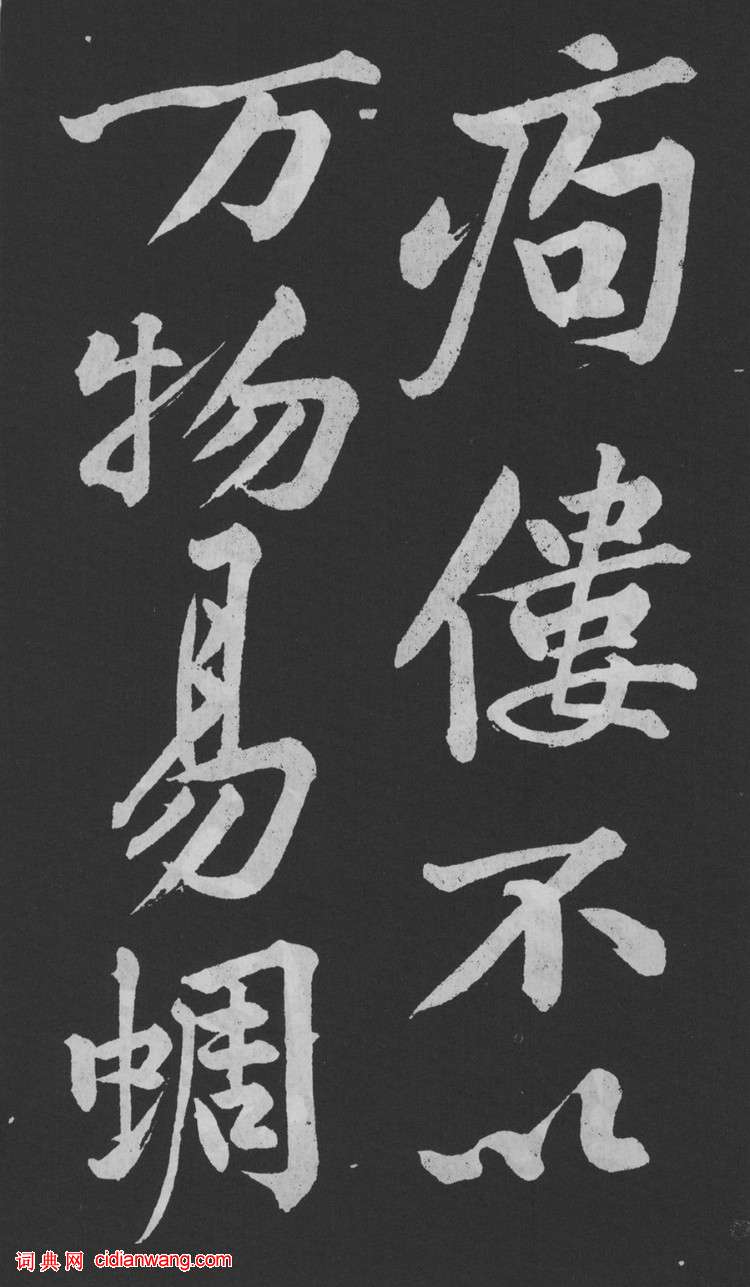 痀僂不以
万物易蜩
词典网 cidianwang.com